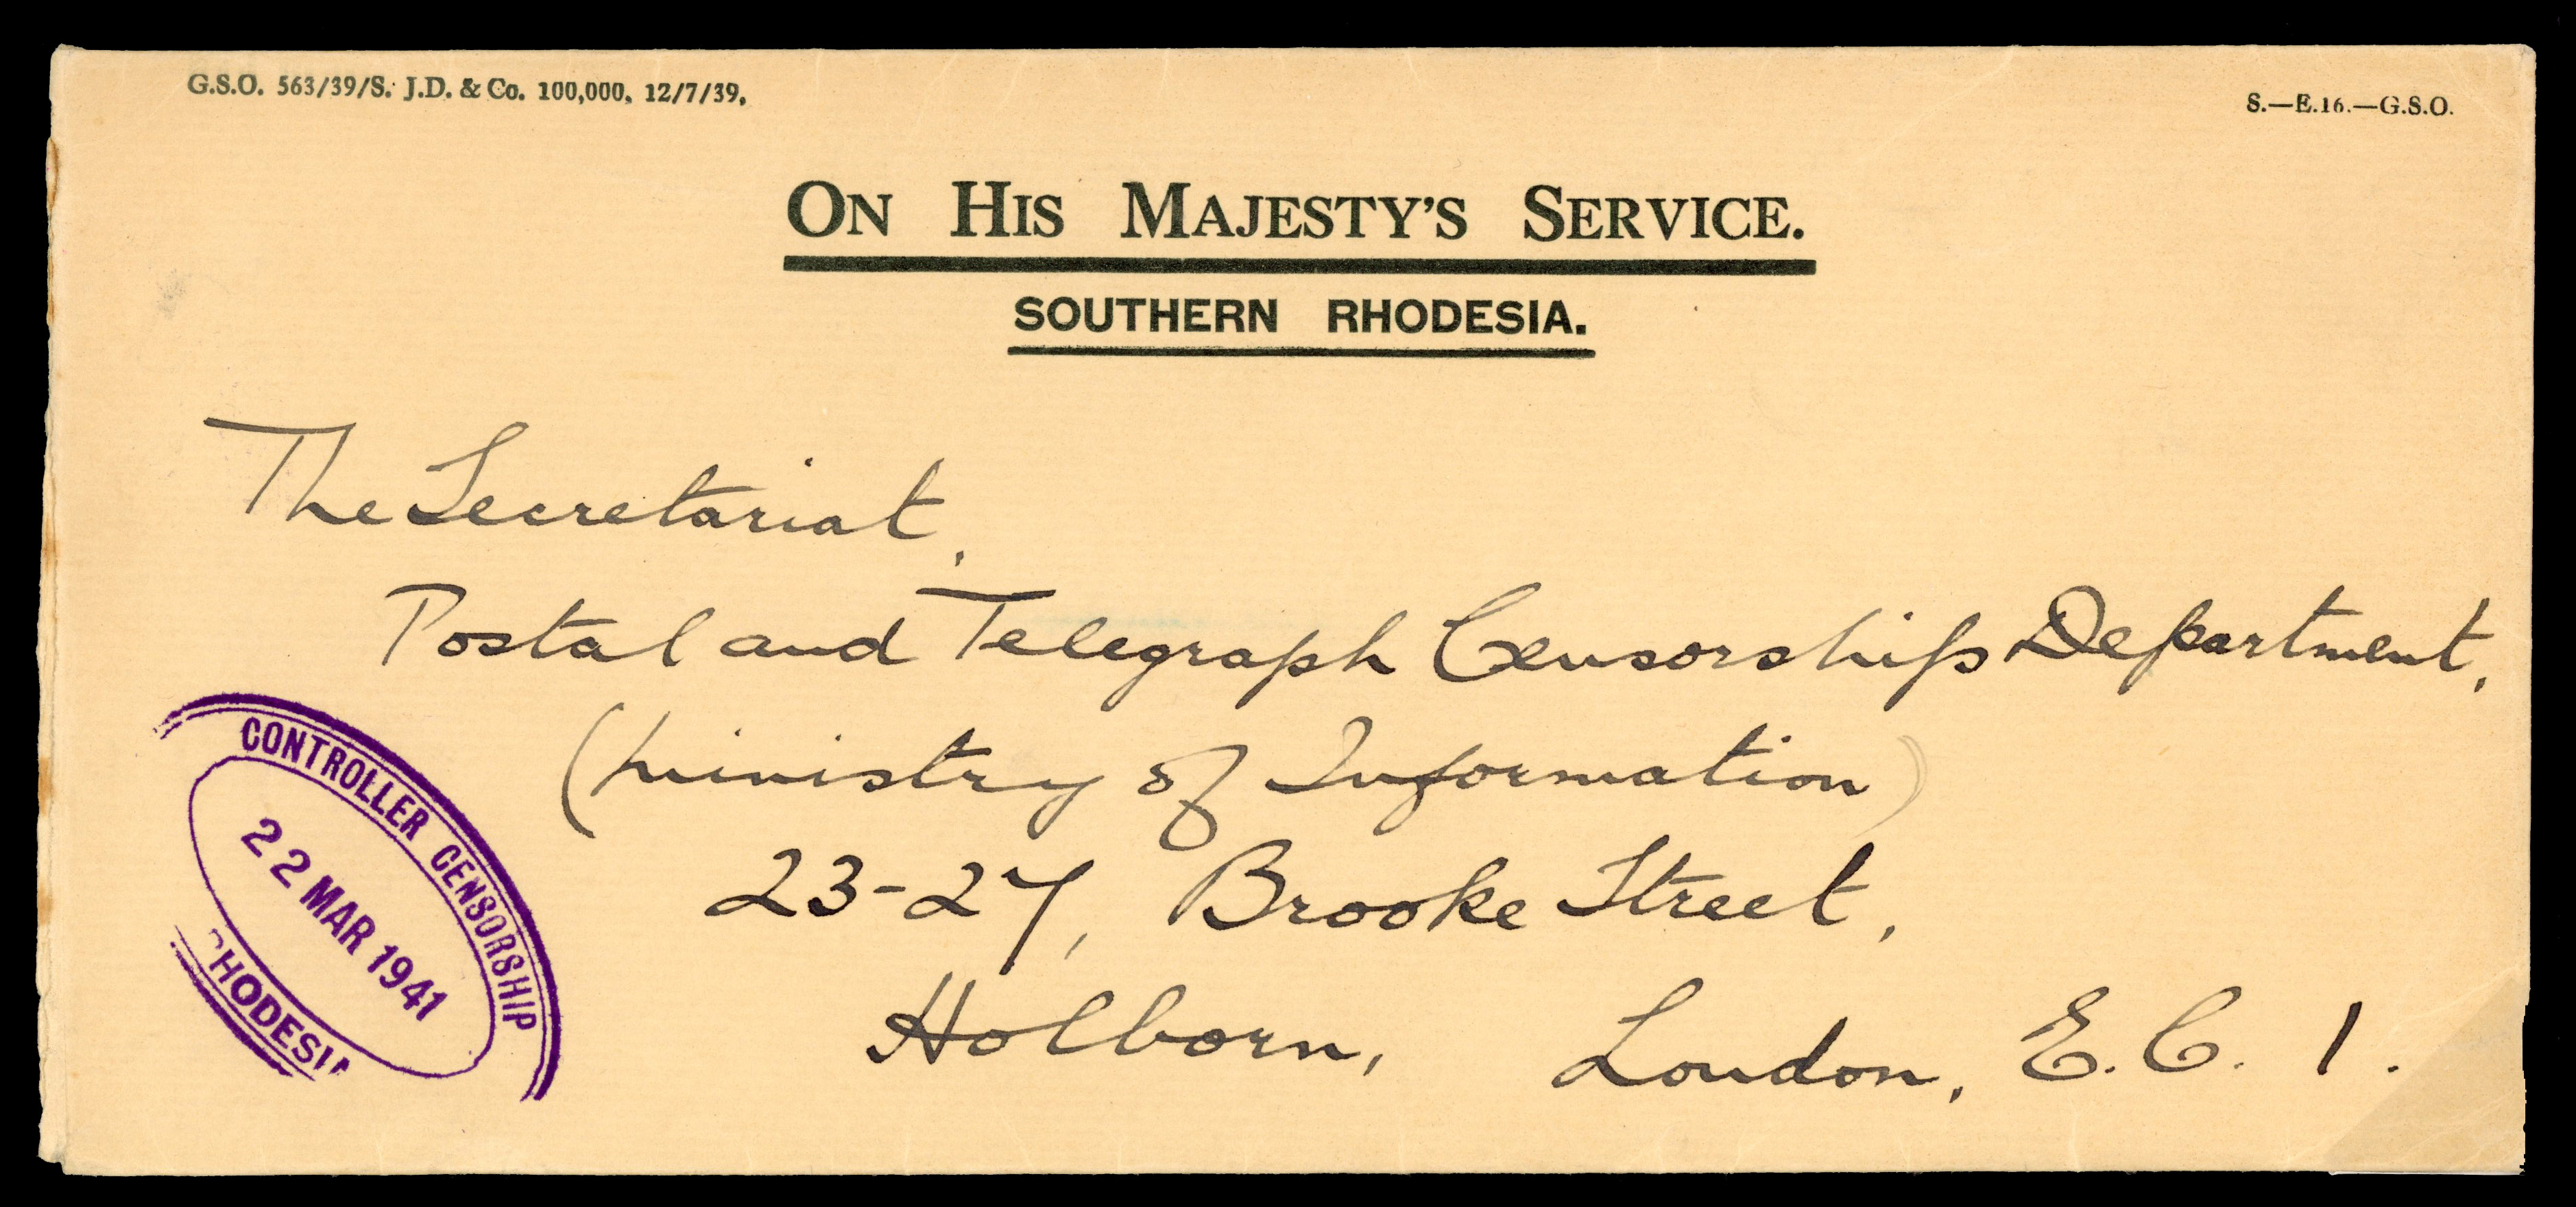 G.S.O. 563/39/S. J.D. & Co. 100,000, 12/7/39.
S.—E.16.—G.S.O.
ON HIS MAJESTY'S SERVICE.
SOUTHERN RHODESIA.
The Secretariat,
Postal and Telegraph Censorship Department,
(Ministry of Information)
23-27, Brooke Street,
Holborn, London, E.C. 1.
CONTROLLER CENSORSHIP
22 MAR 1941
RHODESIA